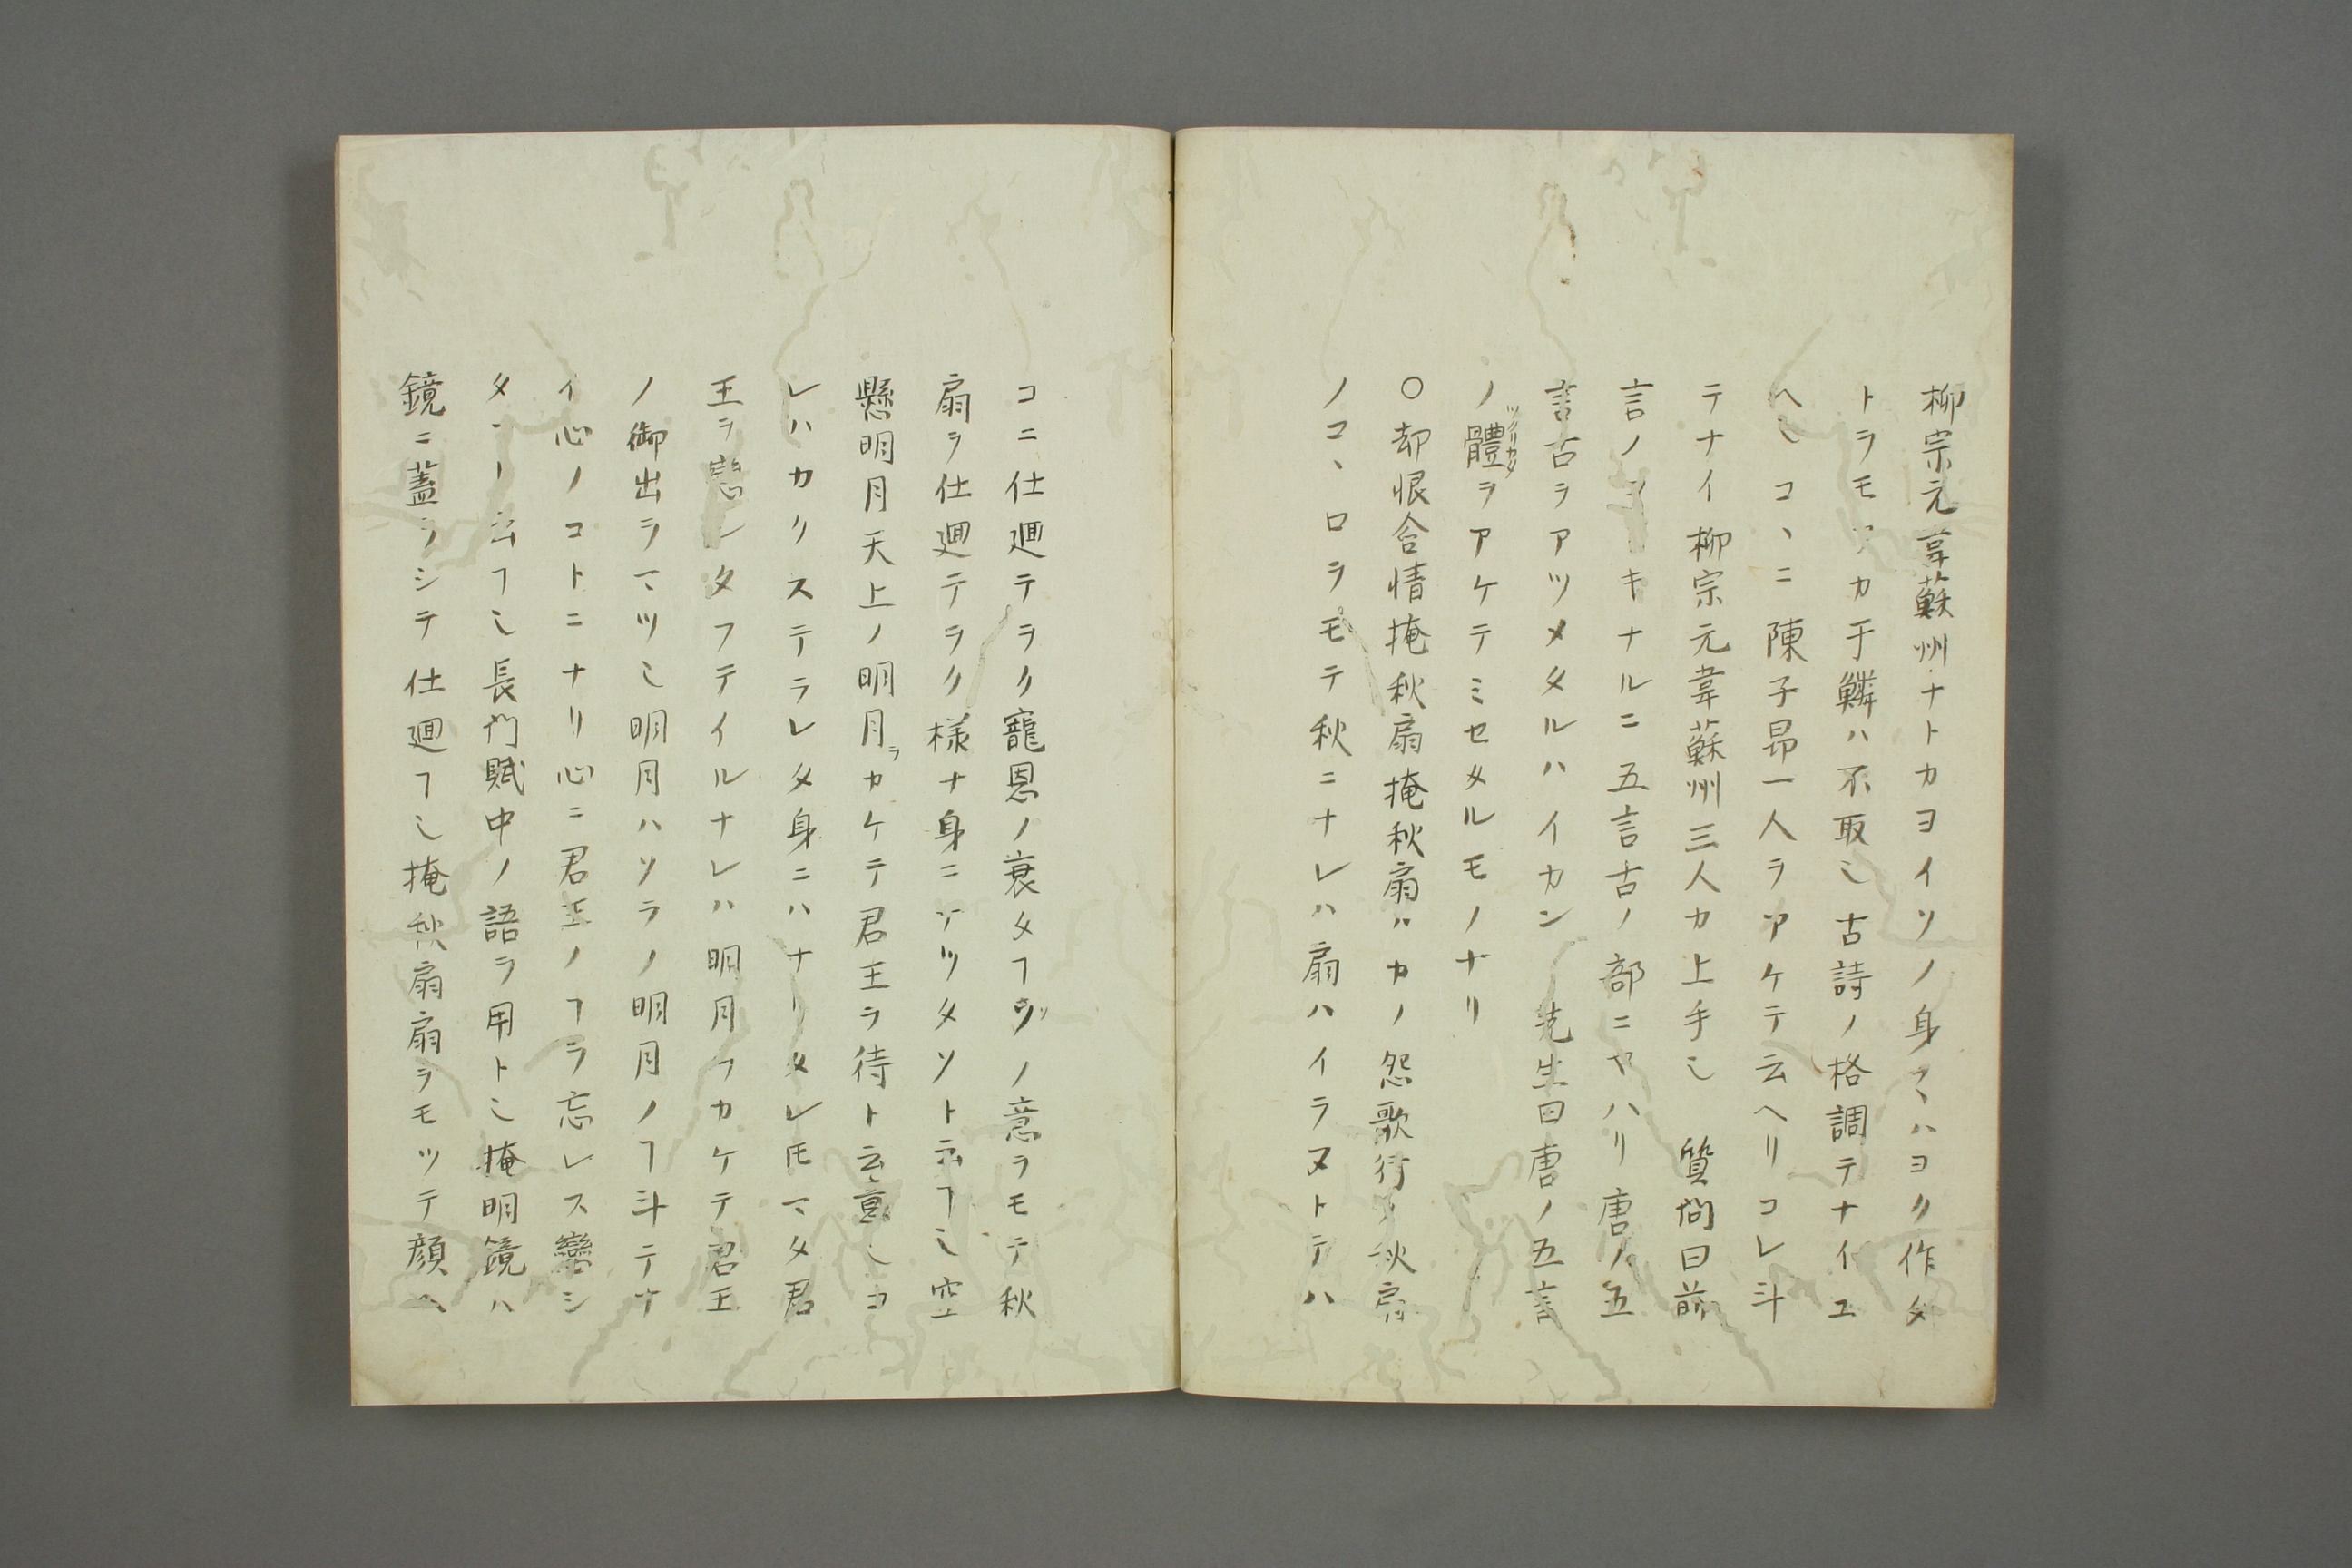 柳宗元韋蘇州ナトカヨイソノ身ハヨク作タ
トラモカ于鱗ハ不取乄古詩ノ格調テナイユ
ヘ乄コヽニ陳子昂一人ヲアケテ云ヘリコレ斗
テナイ柳宗元韋蘇州三人カ上手乄 質問曰前
言ノキナルニ五言古ノ部ニヤハリ唐ノ五
言古ヲアツメタルハイカン 先生曰唐ノ五言
ノ體ヲアケテミセタルモノナリ
ツクリカタ
〇却恨含情掩秋扇掩秋扇ハカノ怨歌行ノ秋扇
ノコヽロヲモテ秋ニナレハ扇ハイラヌトテハ
コニ仕廻テヲク寵恩ノ衰タヿノ意ヲモテ秋
扇ヲ仕廻テヲク様ナ身ニナツタソト云ヿ乄空
懸明月天上ノ明月ヲカケテ君王ヲ待ト云意乄コ
レハカリステラレタ身ニハナリタレ𪜈マタ君
王ヲ戀シタフテイルナレハ明月ヲカケテ君王
ノ御出ヲマツ乄明月ハソラノ明月ノヿ斗テナ
イ心ノコトニナリ心ニ君王ノヿヲ忘レス戀シ
タート云ヿ乄長門賦中ノ語ヲ用ト乄掩明鏡ハ
鏡ニ蓋ヲシテ仕廻フ乄掩秋扇扇ヲモツテ顔ヘ